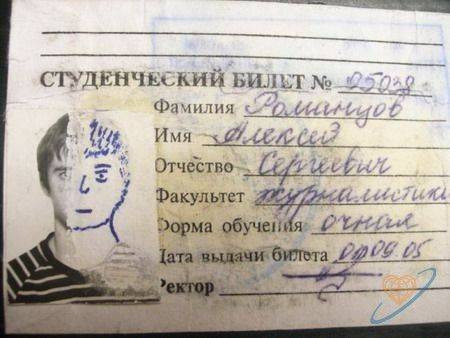 СТУДЕНЧЕСКИЙ БИЛЕТ № 95038
Фамилия Романцов
Имя Алексей
Отчество Сергеевич
Факультет журналистики
Форма обучения очная
Дата выдачи билета 01.09.05
Ректор